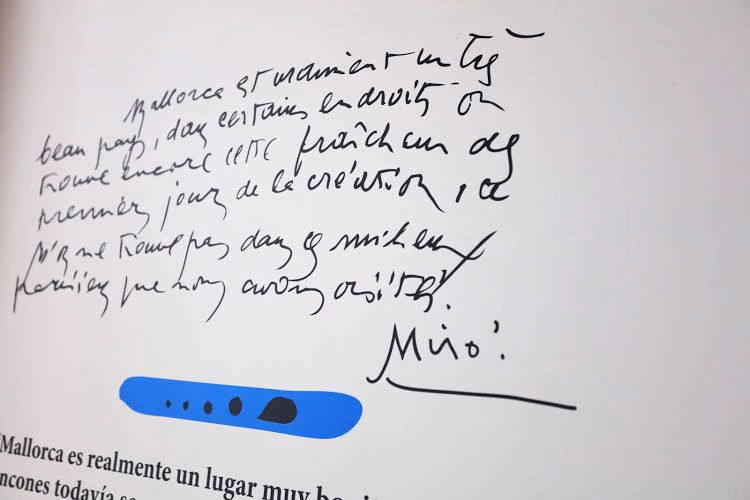 Mallorca est vraiment un très
beau pays, dans certains endroits on
trouve encore cette fraîcheur des
premiers jours de la création, ce
n'
se trouve pas dans les milieux
parisiens que nous avons visités.
Miró.
Mallorca es realmente un lugar muy
ncones todavía